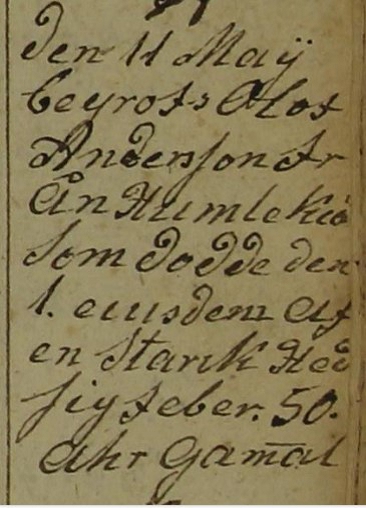 den 11 Maÿ
begrofs Olof
Andersson fr
ån Humlekiä
som dödde den
1. eiusdem af
en Stark Hed
sig feber. 50.
Ahr Gam̄al